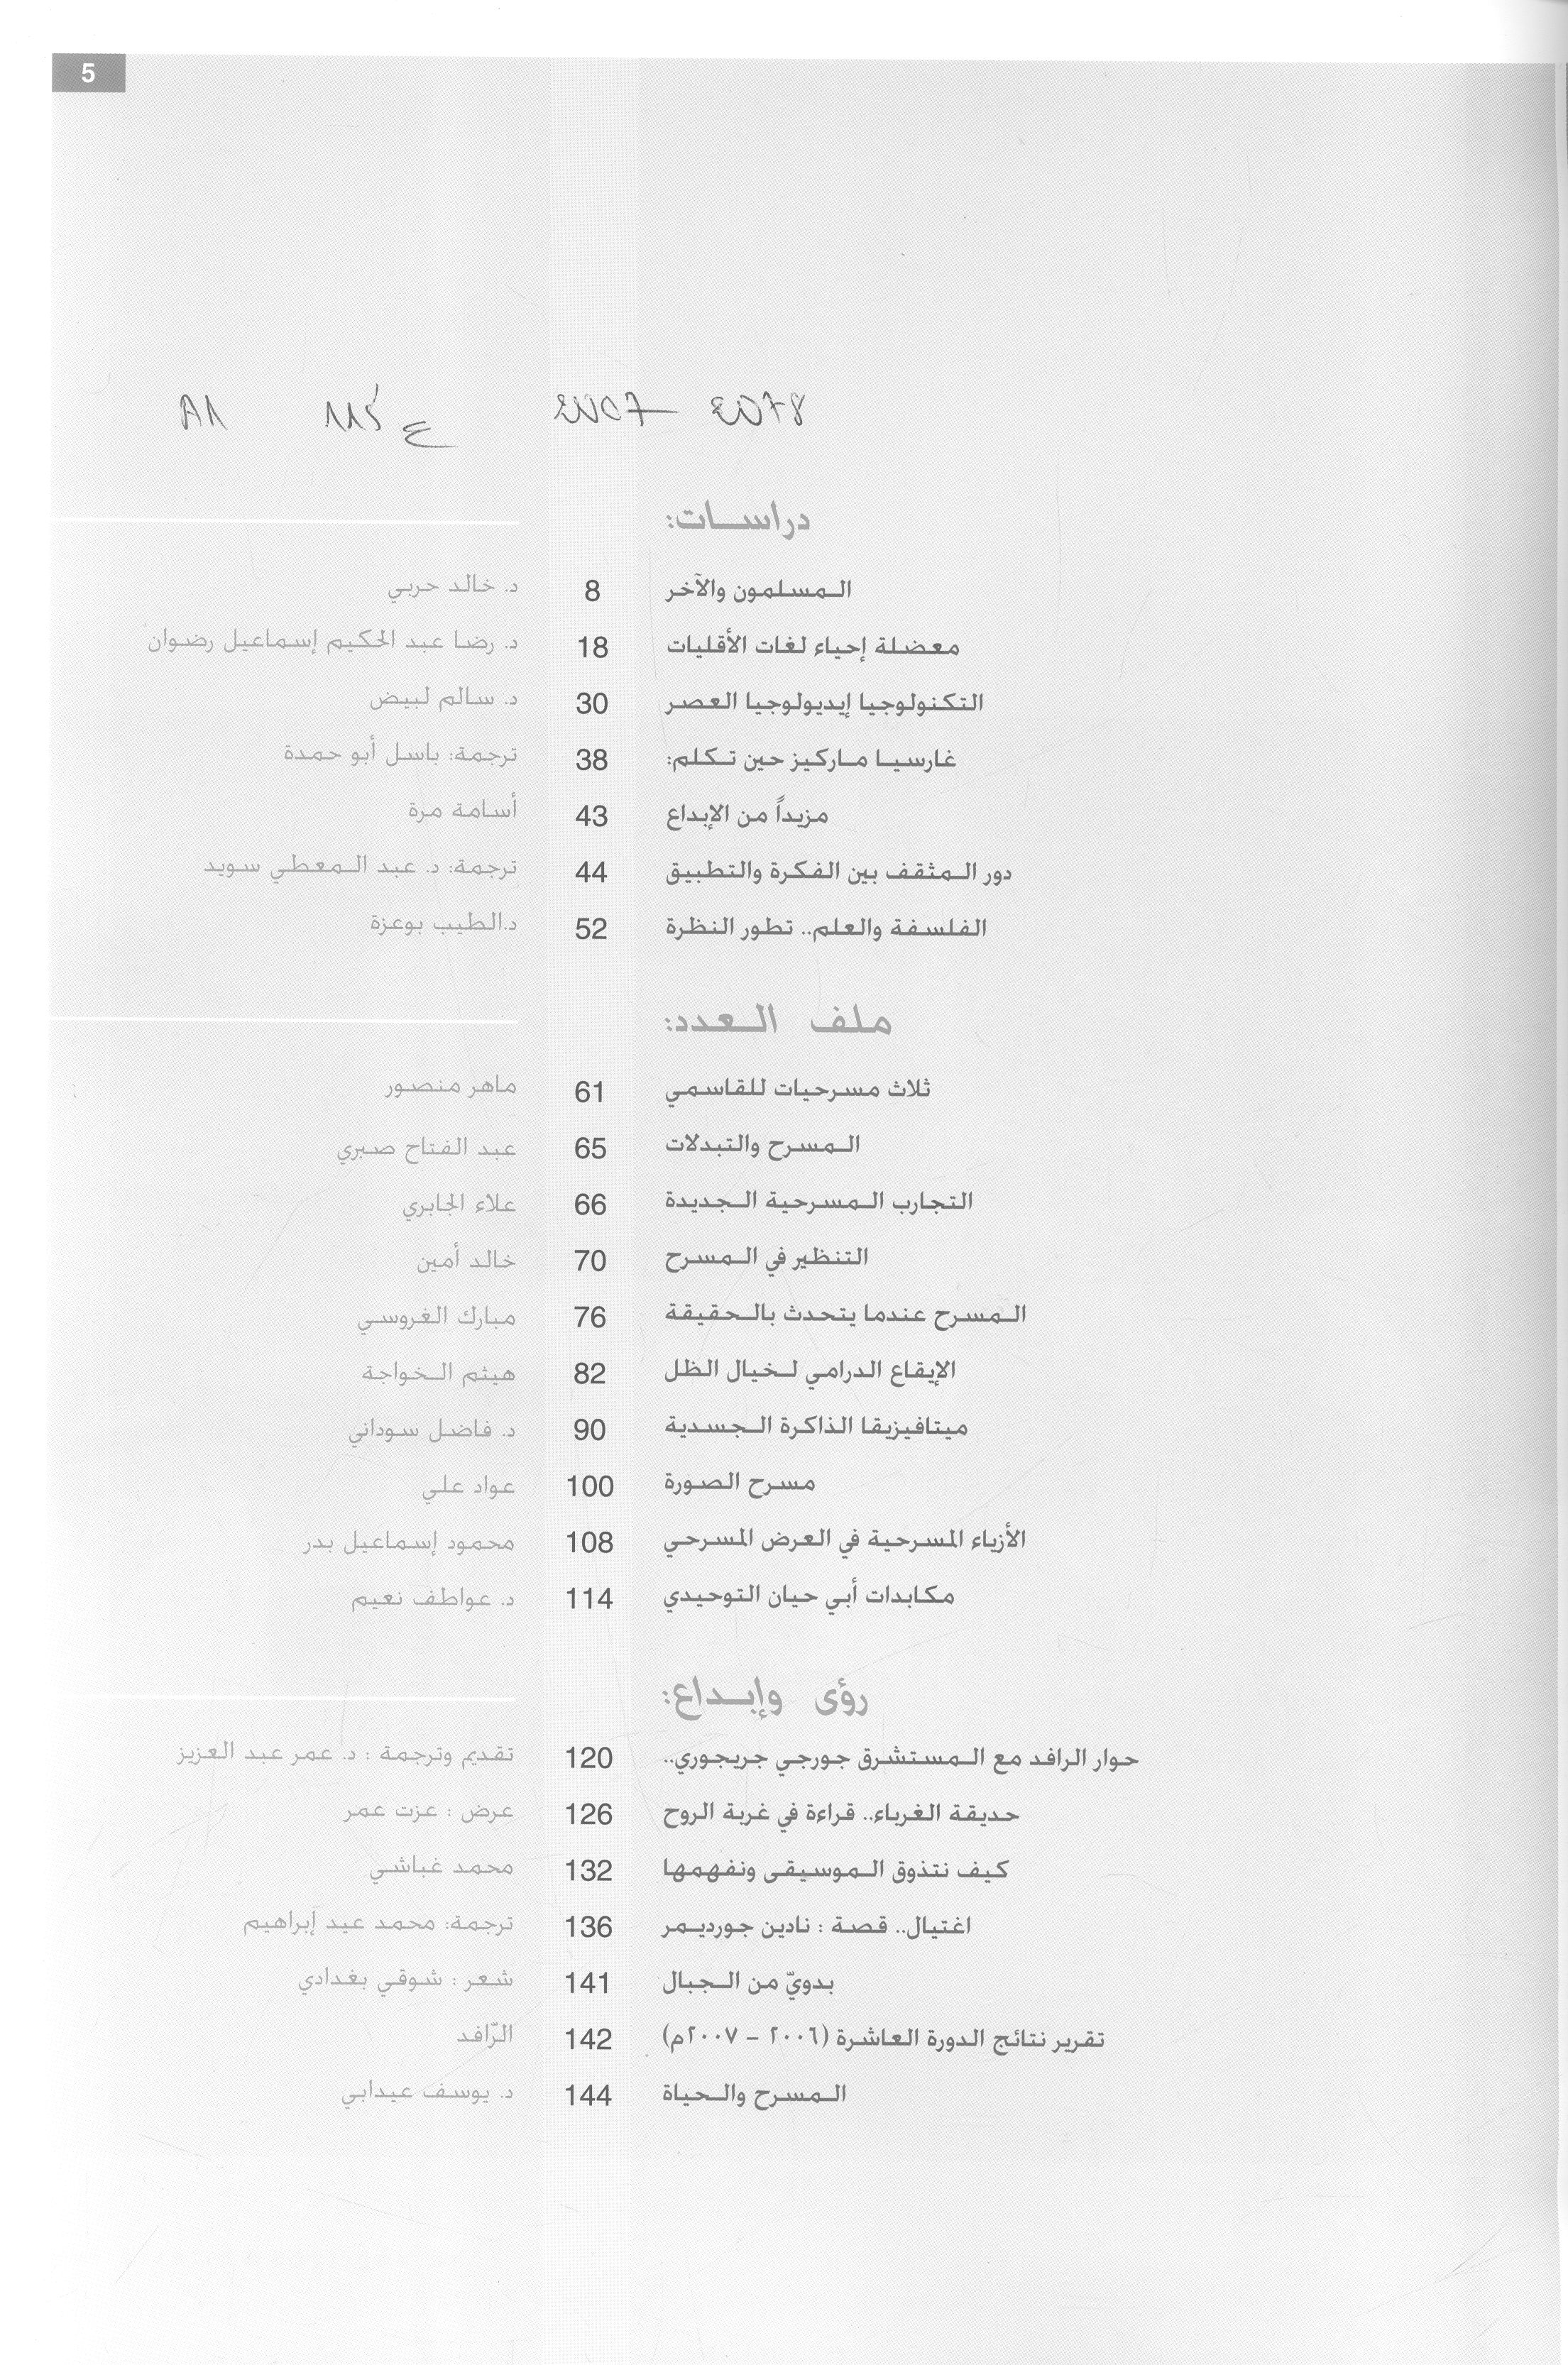 5
A1 115 ع
دراسـات:
الـمسلمون والآخر 8 د. خالد حربي
معضلة إحياء لغات الأقليات 18 د. رضا عبد الحكيم إسماعيل رضوان
التكنولوجيا إيديولوجيا العصر 30 د. سالم لبيض
غارسيـا مـاركيز حين تـكلم: 38 ترجمة: باسل أبو حمدة
مزيداً من الإبداع 43 أسامة مرة
دور الـمثقف بين الفكرة والتطبيق 44 ترجمة: د. عبد الـمعطي سويد
الفلسفة والعلم.. تطور النظرة 52 د.الطيب بوعزة
ملف الـعدد:
ثلاث مسرحيات للقاسمي 61 ماهر منصور
الـمسرح والتبدلات 65 عبد الفتاح صبري
التجارب الـمسرحية الـجديدة 66 علاء الجابري
التنظير في الـمسرح 70 خالد أمين
الـمسرح عندما يتحدث بالـحقيقة 76 مبارك الغروسي
الإيقاع الدرامي لـخيال الظل 82 هيثم الـخواجة
ميتافيزيقا الذاكرة الـجسدية 90 د. فاضل سوداني
مسرح الصورة 100 عواد علي
الأزياء المسرحية في العرض المسرحي 108 محمود إسماعيل بدر
مكابدات أبي حيان التوحيدي 114 د. عواطف نعيم
رؤى وإبـداع:
حوار الرافد مع الـمستشرق جورجي جريجوري.. 120 تقديم وترجمة : د. عمر عبد العزيز
حديقة الغرباء.. قراءة في غربة الروح 126 عرض : عزت عمر
كيف نتذوق الـموسيقى ونفهمها 132 محمد غباشي
اغتيال.. قصة : نادين جورديـمر 136 ترجمة: محمد عيد إبراهيم
بدويّ من الـجبال 141 شعر : شوقي بغدادي
تقرير نتائج الدورة العاشرة (٢٠٠٦ - ٢٠٠٧م) 142 الرّافد
الـمسرح والـحياة 144 د. يوسف عيدابي